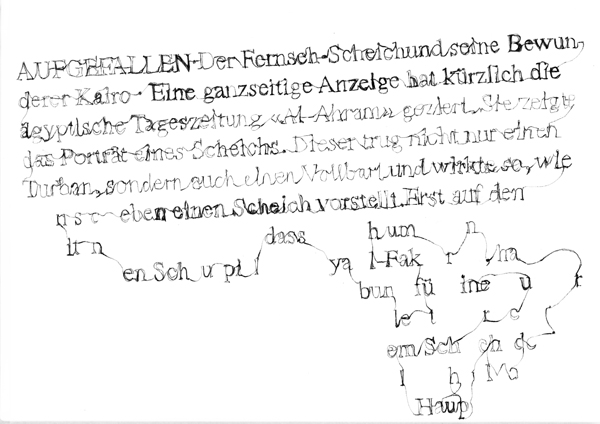 AUFGEFALLEN-Der Fernseh-Scheich und seine Bewun,
derer Kairo- Eine ganzseitige Anzeige hat kürzlich die
ägyptische Tageszeitung «Al-Ahram» geziert. Sie zeigte
das Porträt eines Scheichs. Dieser trug nicht nur einen
Turban, sondern auch einen Vollbart und wirkte so, wie
n s c eben einen Scheich vorstellt. Erst auf den
dass hum n
en Sch ya l-Fak r ha
bun fü ine u r
le t r c
em Sch ch d
l h Mo
Haup